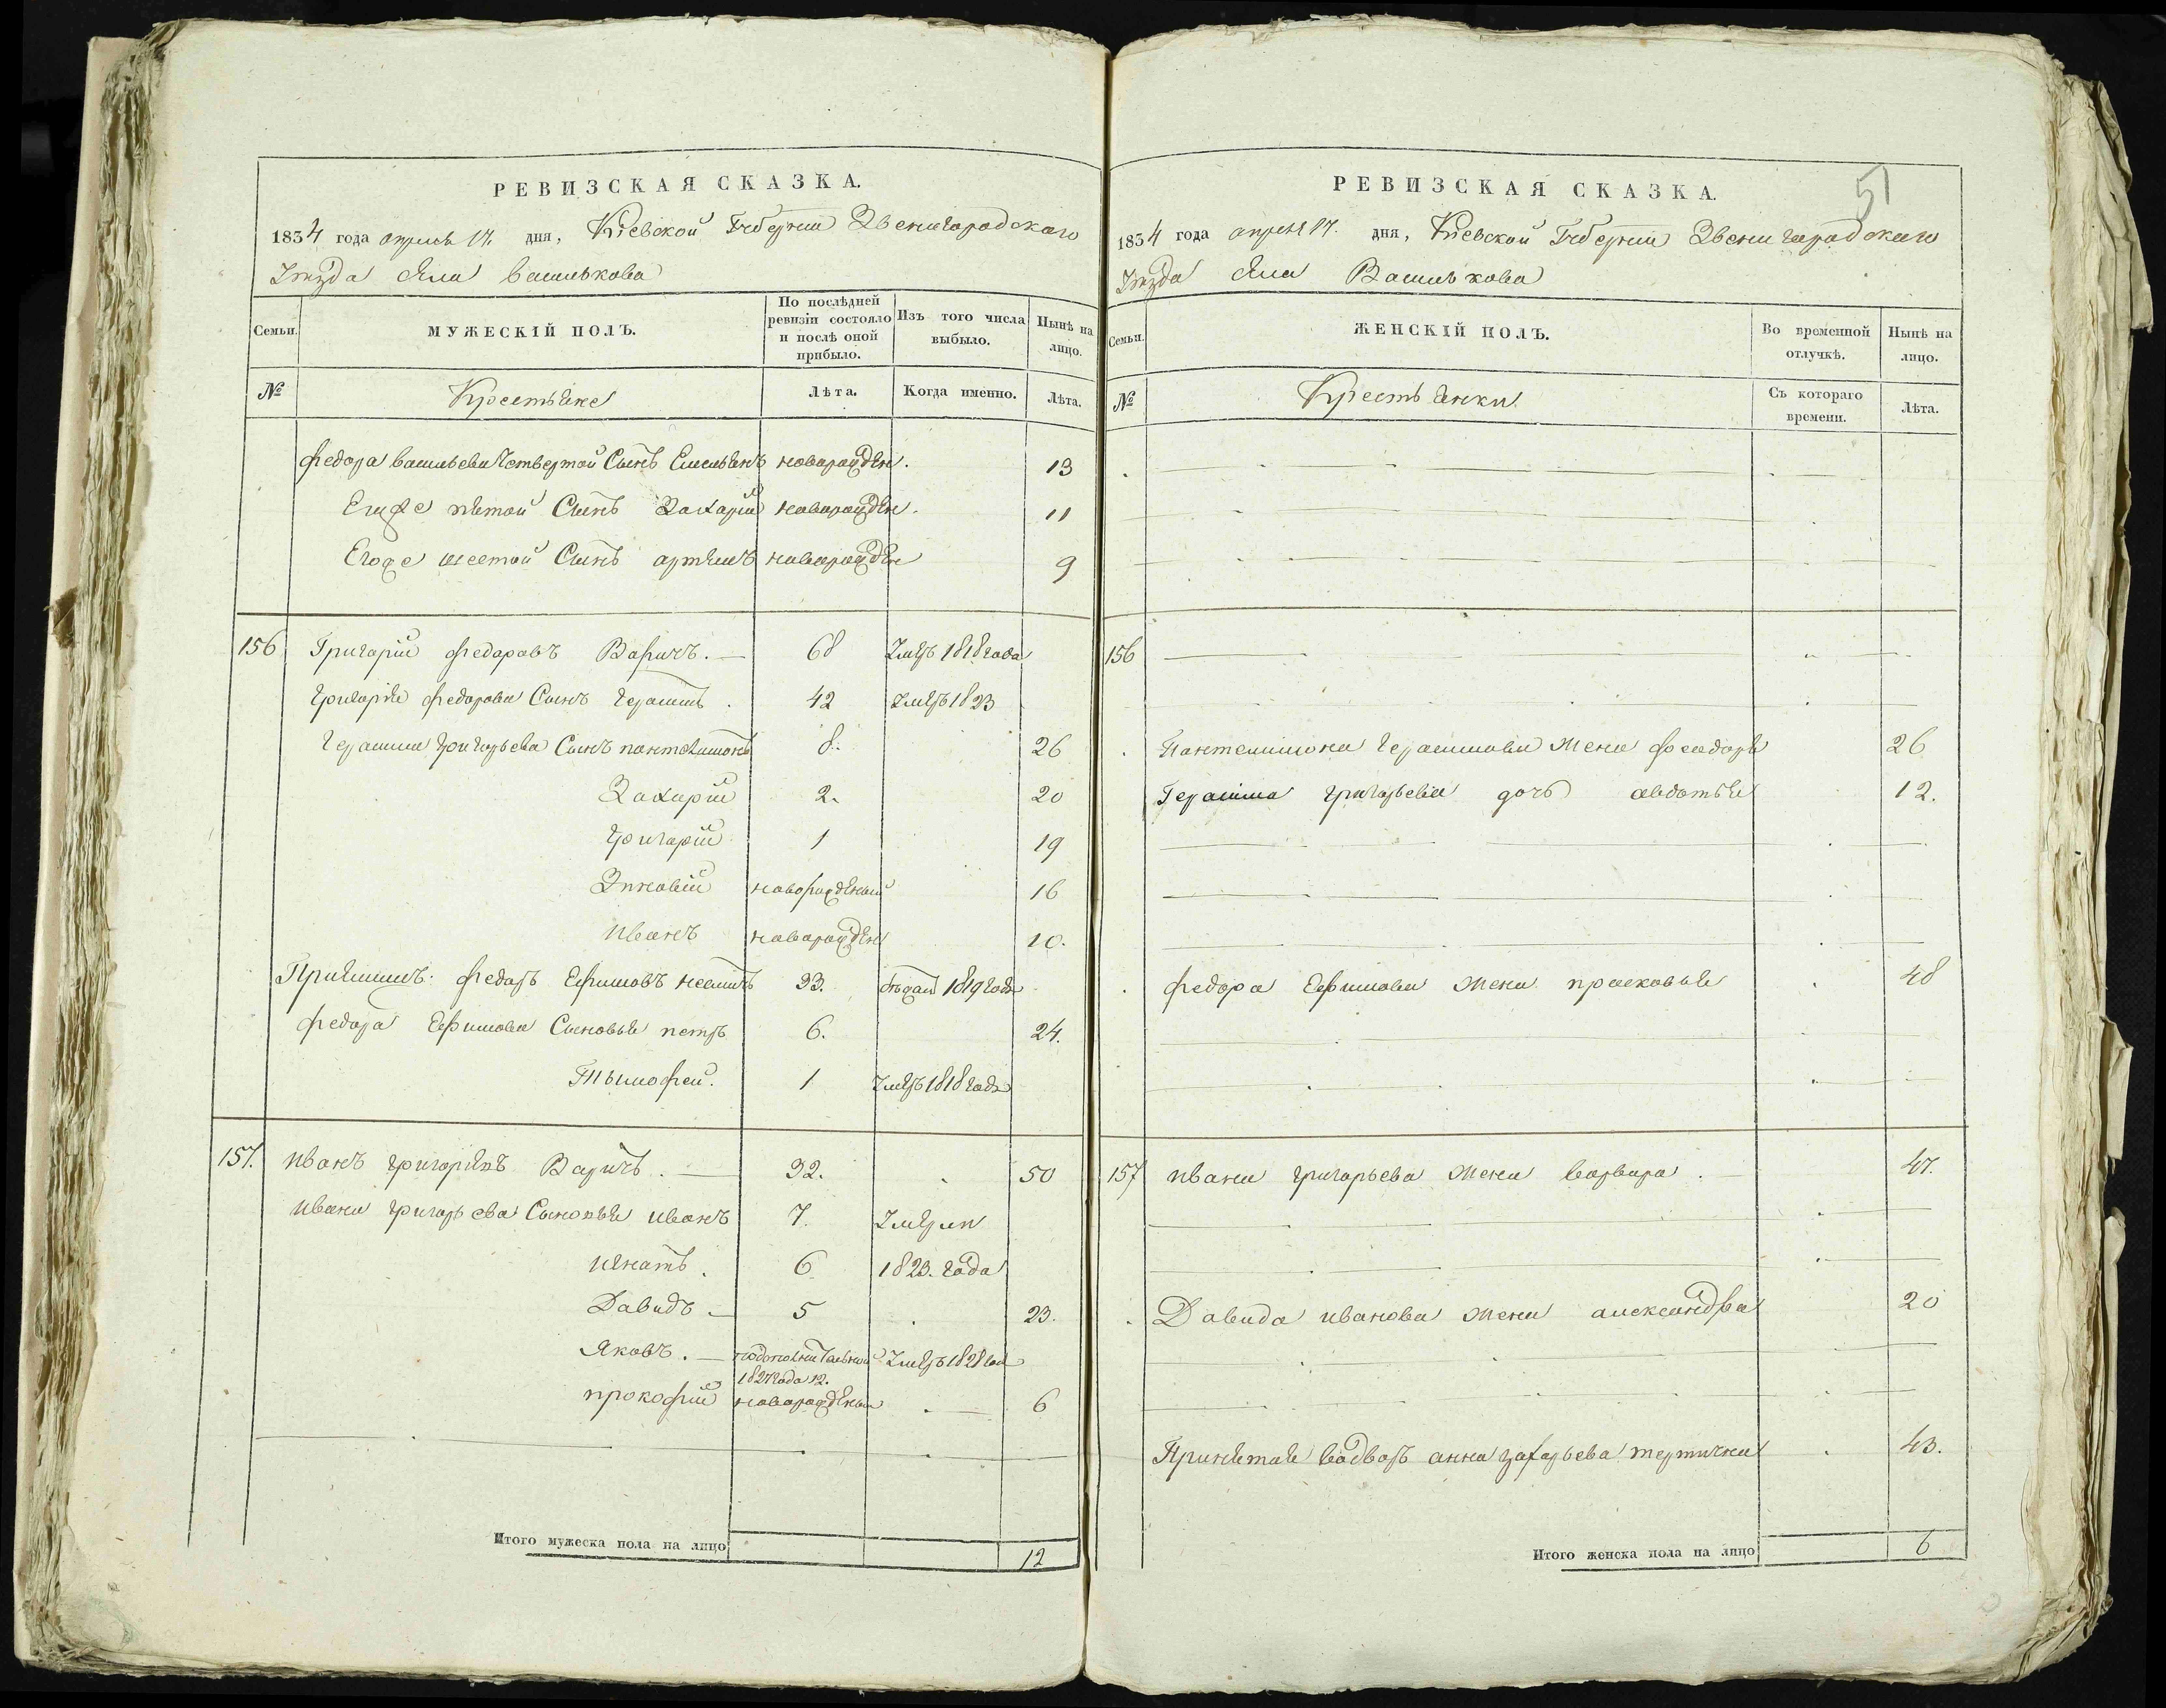 РЕВИЗСКАЯ СКАЗКА.
1834 года апреля 17. дня, Кіевской Губерніи Звенигородского
Уезда Села Василькова
Семьи.
МУЖЕСКІЙ ПОЛЪ.
По послѣдней ревизіи состояло и послѣ оной прибыло.
Изъ того числа выбыло.
Нынѣ на лицо.
№
Крестьяне
Лѣта.
Когда именно.
Лѣта.
федора васильева четвертой Сынъ Емельянъ новорожден. 13
Егоже пятой Сынъ Захарій новорожден. 11
Егоже шестой Сынъ артемъ новорожден 9
156 Григорій федоровъ Варичъ. — 68 Умеръ 1818 года
григорія федорова Сынъ герасимъ . 42 Умеръ 1823
герасима григорьева Сынъ пантелимонъ 8. 26
Захарій 2. 20
григорій 1 19
Зиновій новорожденый 16
иванъ новорожден 10.
федоръ Ефимовъ 33. 1819 года
федора Ефимова Сыновья петръ 6. 24.
Тымофей. 1 Умеръ 1818 года
157. иванъ григорьевъ Варичъ. — 32. 50
ивана григорьева Сыновья иванъ 7. Умерли
игнатъ. 6 1823. года
Давидъ — 5 23.
Яковъ. — Умеръ 1828 год
1827 года 12.
прокофій новорожденый — 6
Итого мужеска пола на лицо 12
51
РЕВИЗСКАЯ СКАЗКА.
1834 года апреля 17. дня, Кіевской Губерніи Звенигородского
Уезда Села Василькова
Семьи.
ЖЕНСКІЙ ПОЛЪ.
Во временной отлучкѣ.
Нынѣ на лицо.
№
Крестьянки.
Съ котораго времени.
Лѣта.
156
Пантелимона герасимова жена феодора 26
Герасима григорьева дочь авдотья 12.
федора Ефимова жена прасковья 48
157 ивана григорьева жена варвара. — 47.
Давида иванова жена александра 20
Принятая водворъ анна захарьева 43.
Итого женска пола на лицо 6